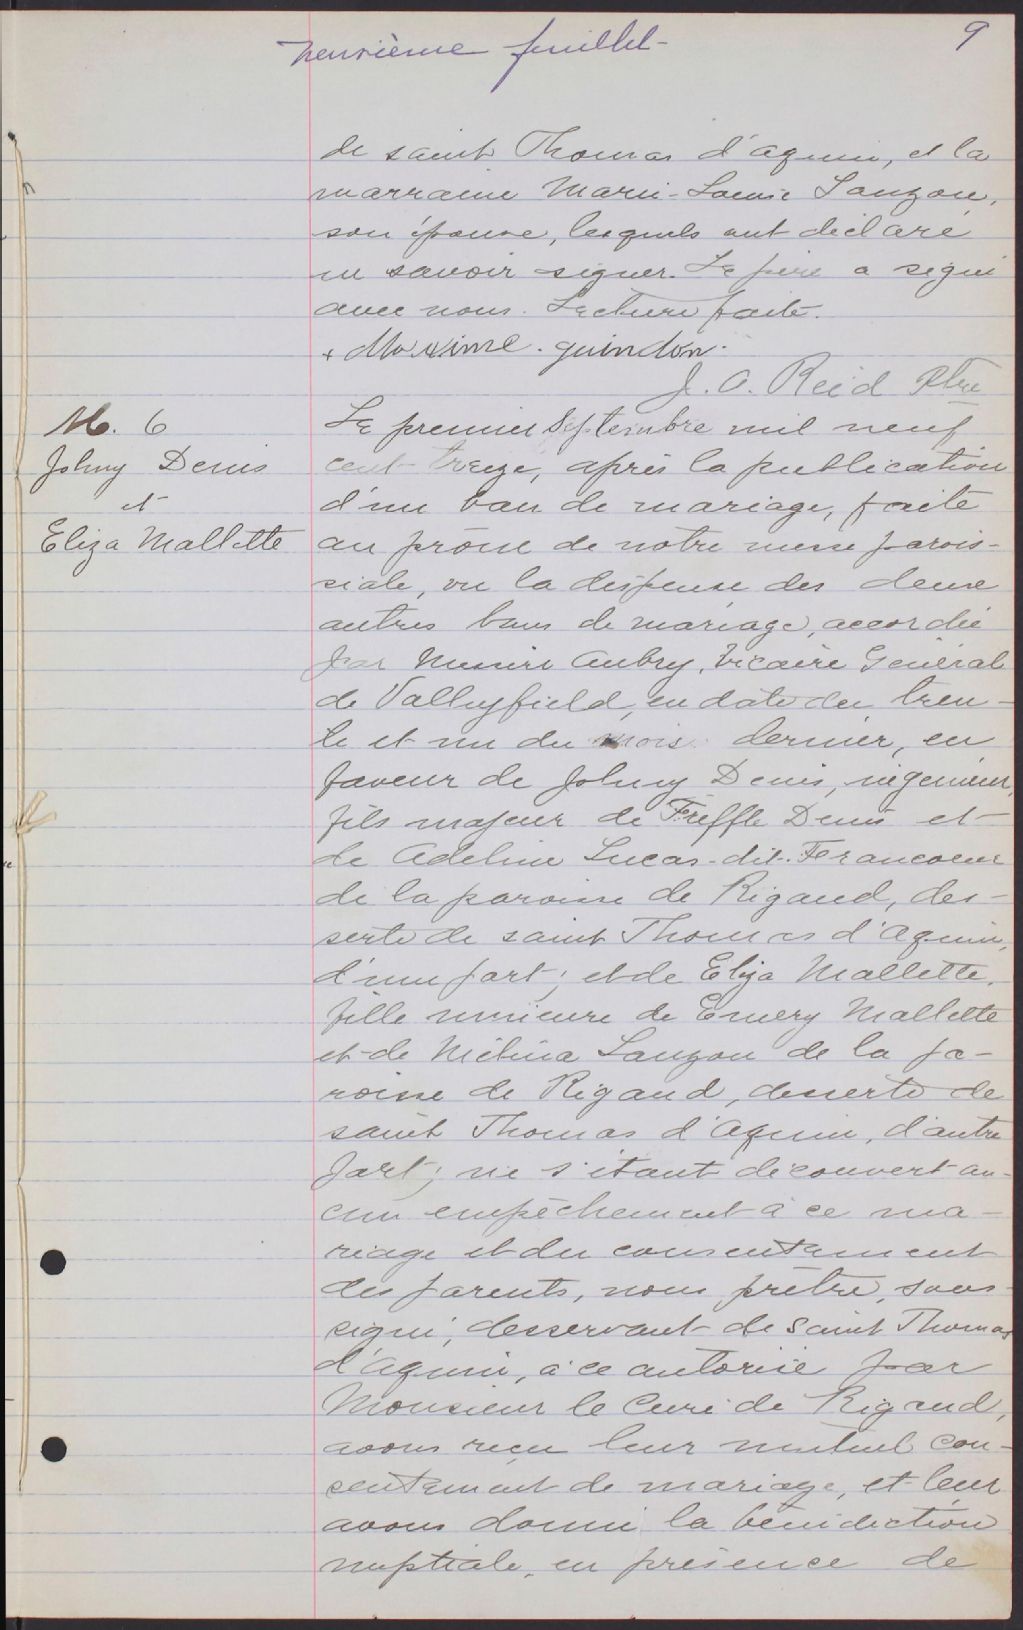 neuvième feuillet
9
de saint Thomas d'Aquin, et la
marraine Marie-Louise Lauzon,
son épouse, lesquels ont déclaré
ne savoir signer. Le père a signé
avec nous. Lecture faite.
+ Maxime. guindon.
J. A. Reid Ptre
M. 6
Johny Denis
et
Eliza Mallette
Le premier Septembre mil neuf
cent treize, après la publication
d'un ban de mariage, faite
au prône de notre messe parois-
siale, vu la dispense des deux
autres bans de mariage, accordée
par Messire Aubry, Vicaire Général
de Valleyfield, en date du tren-
te et un du mois dernier, en
faveur de Johny Denis, ingénieur,
fils majeur de Treffle Denis et
de Adeline Lucas-dit-Francoeur
de la paroisse de Rigaud, des-
serte de saint Thomas d'Aquin,
d'une part; et de Eliza Mallette,
fille mineure de Emery Mallette
et de Mélina Lauzon de la pa-
roisse de Rigaud, desserte de
saint Thomas d'Aquin, d'autre
part; ne s'étant découvert au-
cun empêchement à ce ma-
riage et du consentement
des parents, nous prêtre, sous-
signé, desservant de Saint Thomas
d'Aquin, à ce autorisé par
Monsieur le Curé de Rigaud,
avons reçu leur mutuel con-
sentement de mariage, et leur
avons donné la bénédiction
nuptiale, en présence de